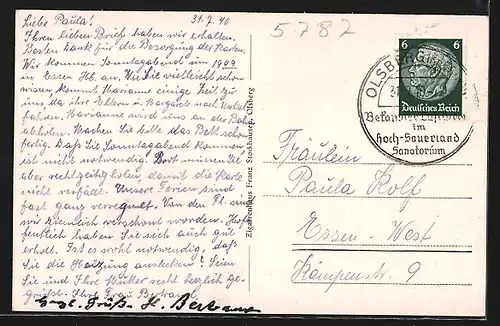 Liebe Paula!
31.7.40
Ihren lieben Brief haben wir erhalten.
Besten Dank für die Besorgung der Karten.
Wir kommen Sonntagabend um 19 09
in Essen Hb. an. Wie Sie vielleicht schon
wissen, kommt Marianne einige Zeit zu
uns, da ihre Eltern u. Margarete nach
fahren. Marianne wird uns an der Bahn
abholen. Machen Sie bitte das Bett schon
fertig. Daß Sie Sonntagabend kommen
ist nicht notwendig. Dort müssen Sie
aber rechtzeitig holen, damit die Karte
nicht verfällt. Unsere Ferien sind
fast ganz verregnet. Von den Fl. sind
wir ziemlich verschont worden. Hof-
fentlich haben Sie sich auch gut
erholt. Ist es wohl notwendig, daß
Sie die Heizung anstecken? Seien
Sie und Ihre Mutter recht herzlich ge-
grüßt. Ihre Frau
Grüße H.
Zigarrenhaus Franz Stockhausen, Olsberg
5282
6 6
Deutsches Reich
OLSBERG
Bekannter Luftkurort
im
Hoch-Sauerland
Sanatorium
Fräulein
Paula Kolf
Essen-West
Kämpenstr. 9